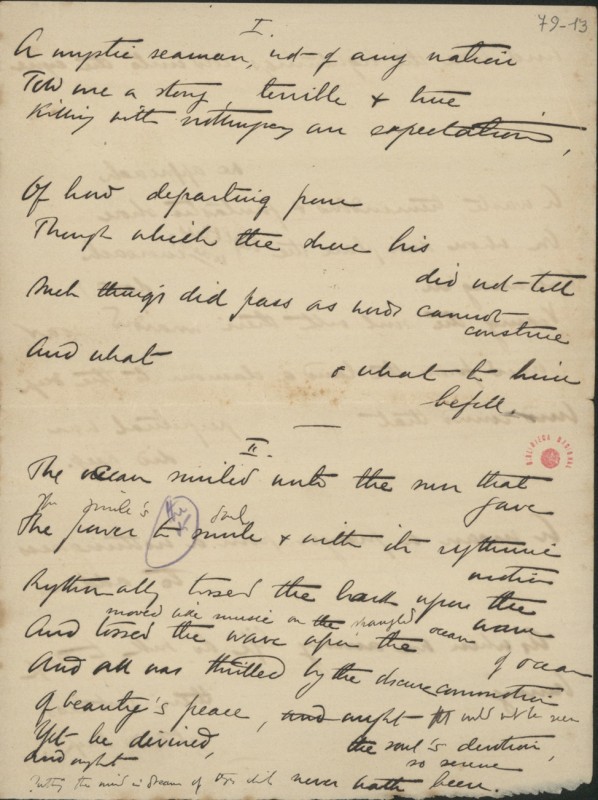 79-13
I.
A mystic seaman, not of any nation
Told me a story, terrible & true
Killing with nothingness an expectation,
Of how departing from
Through which the shore his
did not tell
Such things did pass as words cannot
construe
And what & what to him
befell.
II.
The ocean smiled unto the sun that
gave
The smile's soul
The power to smile & with its rythmic
motion
Rythmically tossed the bark upon the
wave
moved like music on the ocean
And tossed the wave upon the of ocean
And all was thrilled by the obscure commotion
Of beauty's peace, and aught could not be seen
Yet be divined, the soul's devotion,
And aught so serene
the mind in dream of never hath been.